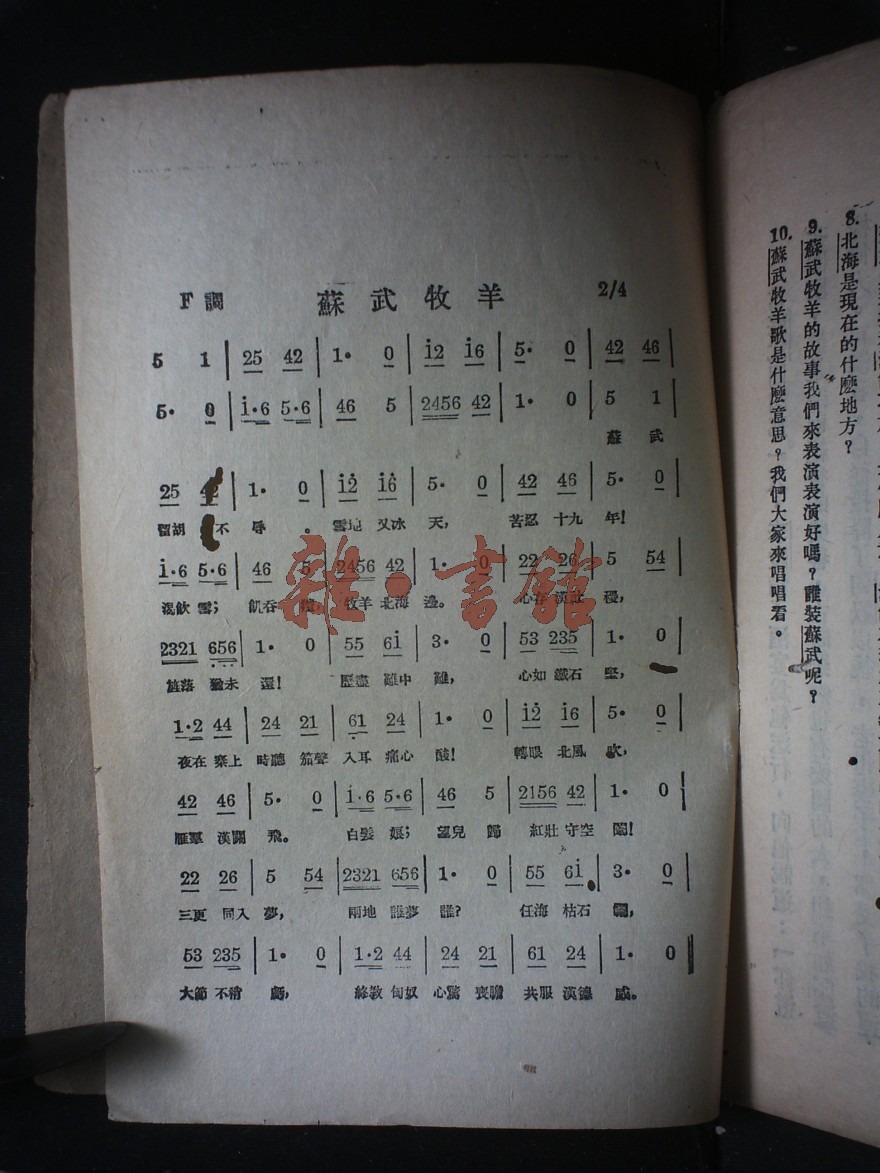 F調 蘇武牧羊 2/4
5 1 | 25 42 | 1· 0 | i2 i6 | 5· 0 | 42 46 |
5· 0 | i·6 5·6 | 46 5 | 2456 42 | 1· 0 | 5 1 |
蘇 武
25 42 | 1· 0 | i2 i6 | 5· 0 | 42 46 | 5· 0 |
留胡 不 辱 。 雪地 又冰 天, 苦忍 十九 年!
i·6 5·6 | 46 5 | 2456 42 | 1· 0 | 22 26 | 5 54 |
渴飲 雪; 飢吞 牧羊 北海 邊。 心存 漢社 稷,
2321 656 | 1· 0 | 55 6i | 3· 0 | 53 235 | 1· 0 |
旄落 猶未 還! 歷盡 難中 難, 心如 鐵石 堅,
1·2 44 | 24 21 | 61 24 | 1· 0 | i2 i6 | 5· 0 |
夜在 塞上 時聽 笳聲 入耳 痛心 酸! 轉眼 北風 吹,
42 46 | 5· 0 | i·6 5·6 | 46 5 | 2156 42 | 1· 0 |
雁羣 漢關 飛。 白髮 娘; 望兒 歸 紅壯 守空 閨!
22 26 | 5 54 | 2321 656 | 1· 0 | 55 6i | 3· 0 |
三更 同入 夢, 兩地 誰夢 誰? 任海 枯石 爛,
53 235 | 1· 0 | 1·2 44 | 24 21 | 61 24 | 1· 0 ‖
大節 不稍 虧, 終教 匈奴 心驚 喪膽 共服 漢德 威。
雜·書館
8. 北海是現在的什麽地方?
9. 蘇武牧羊的故事我們來表演表演好嗎?誰裝蘇武呢?
10. 蘇武牧羊歌是什麽意思?我們大家來唱唱看。